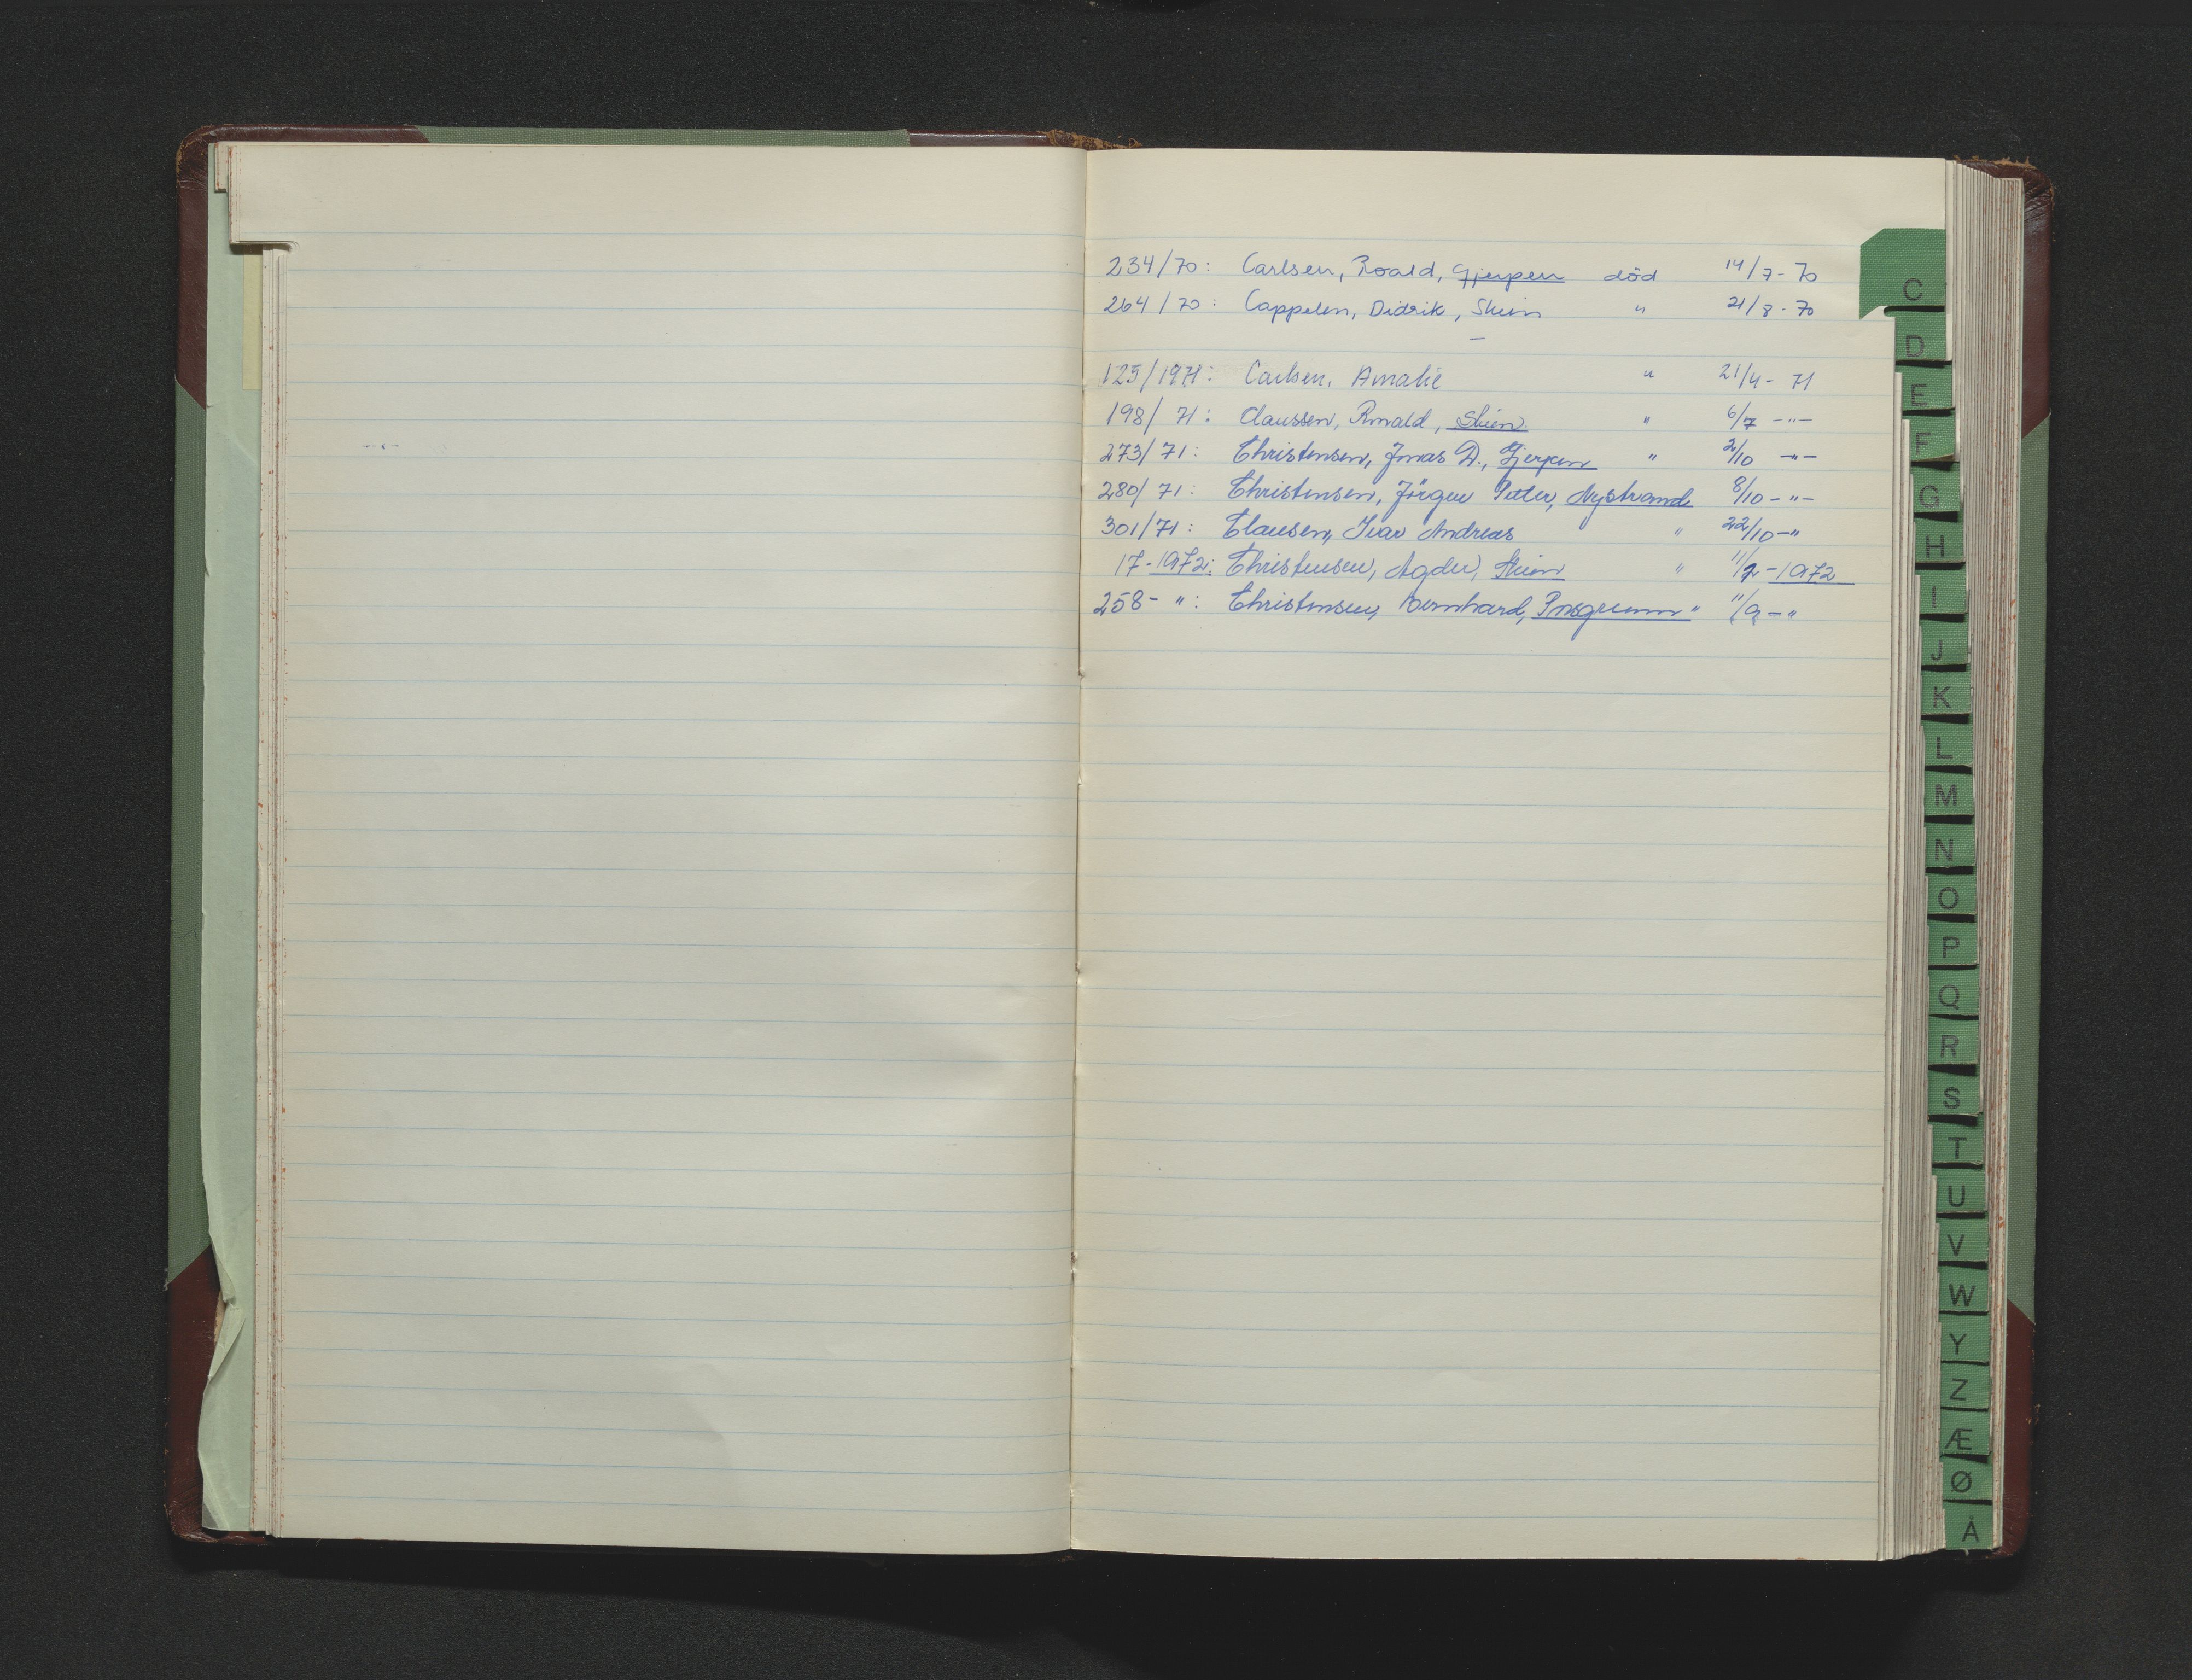 234/70: Carlsen, Roald, Gjerpen död 14/7-70
264/70: Cappelen, Didrik, Skien " 21/8-70
125/1971: Carlsen, Amalie " 21/4-71
198/71: Claussen, Ronald, Skien " 6/7 -"-
273/71: Christensen, Jonas D., Gjerpen " 2/10 -"-
280/71: Christensen, Jörgen Peter, Nystrand 8/10-"-
301/71: Clausen, Ivar Andreas " 22/10-"
17-1972: Christensen, Agder, Skien " 11/1-1972
258-": Christensen, Bernhard, Porsgrunn " 11/9-"
C
D
E
F
G
H
I
J
K
L
M
N
O
P
Q
R
S
T
U
V
W
Y
Z
Æ
Ø
Å